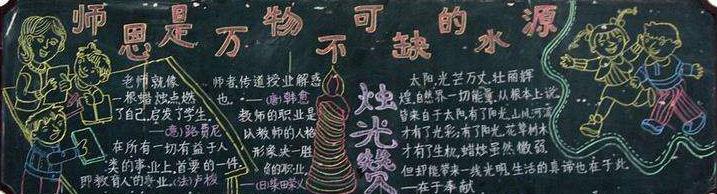 师恩是万物不可缺的水源
老师就像
一根蜡烛点燃
了自己,启发了学生。
——(意)路易尼
在所有一切有益于人
类的事业上,首要的一件,
即教育人的事业。(法)卢梭
师者,传道授业解惑
也。——(唐)韩愈
教师的职业是
以教师的人格
形象决一胜
负的职业。
——(日)柴田荣义
烛光赞
太阳,光芒万丈,壮丽辉
煌,自然界一切能量,从根本上说,
皆来自于太阳,有了阳光,山川河流
才有了光彩;有了阳光,花草树木
才有了生机,蜡烛虽然微弱,
但却能带来一线光明,生活的真谛也在于此
——在于奉献